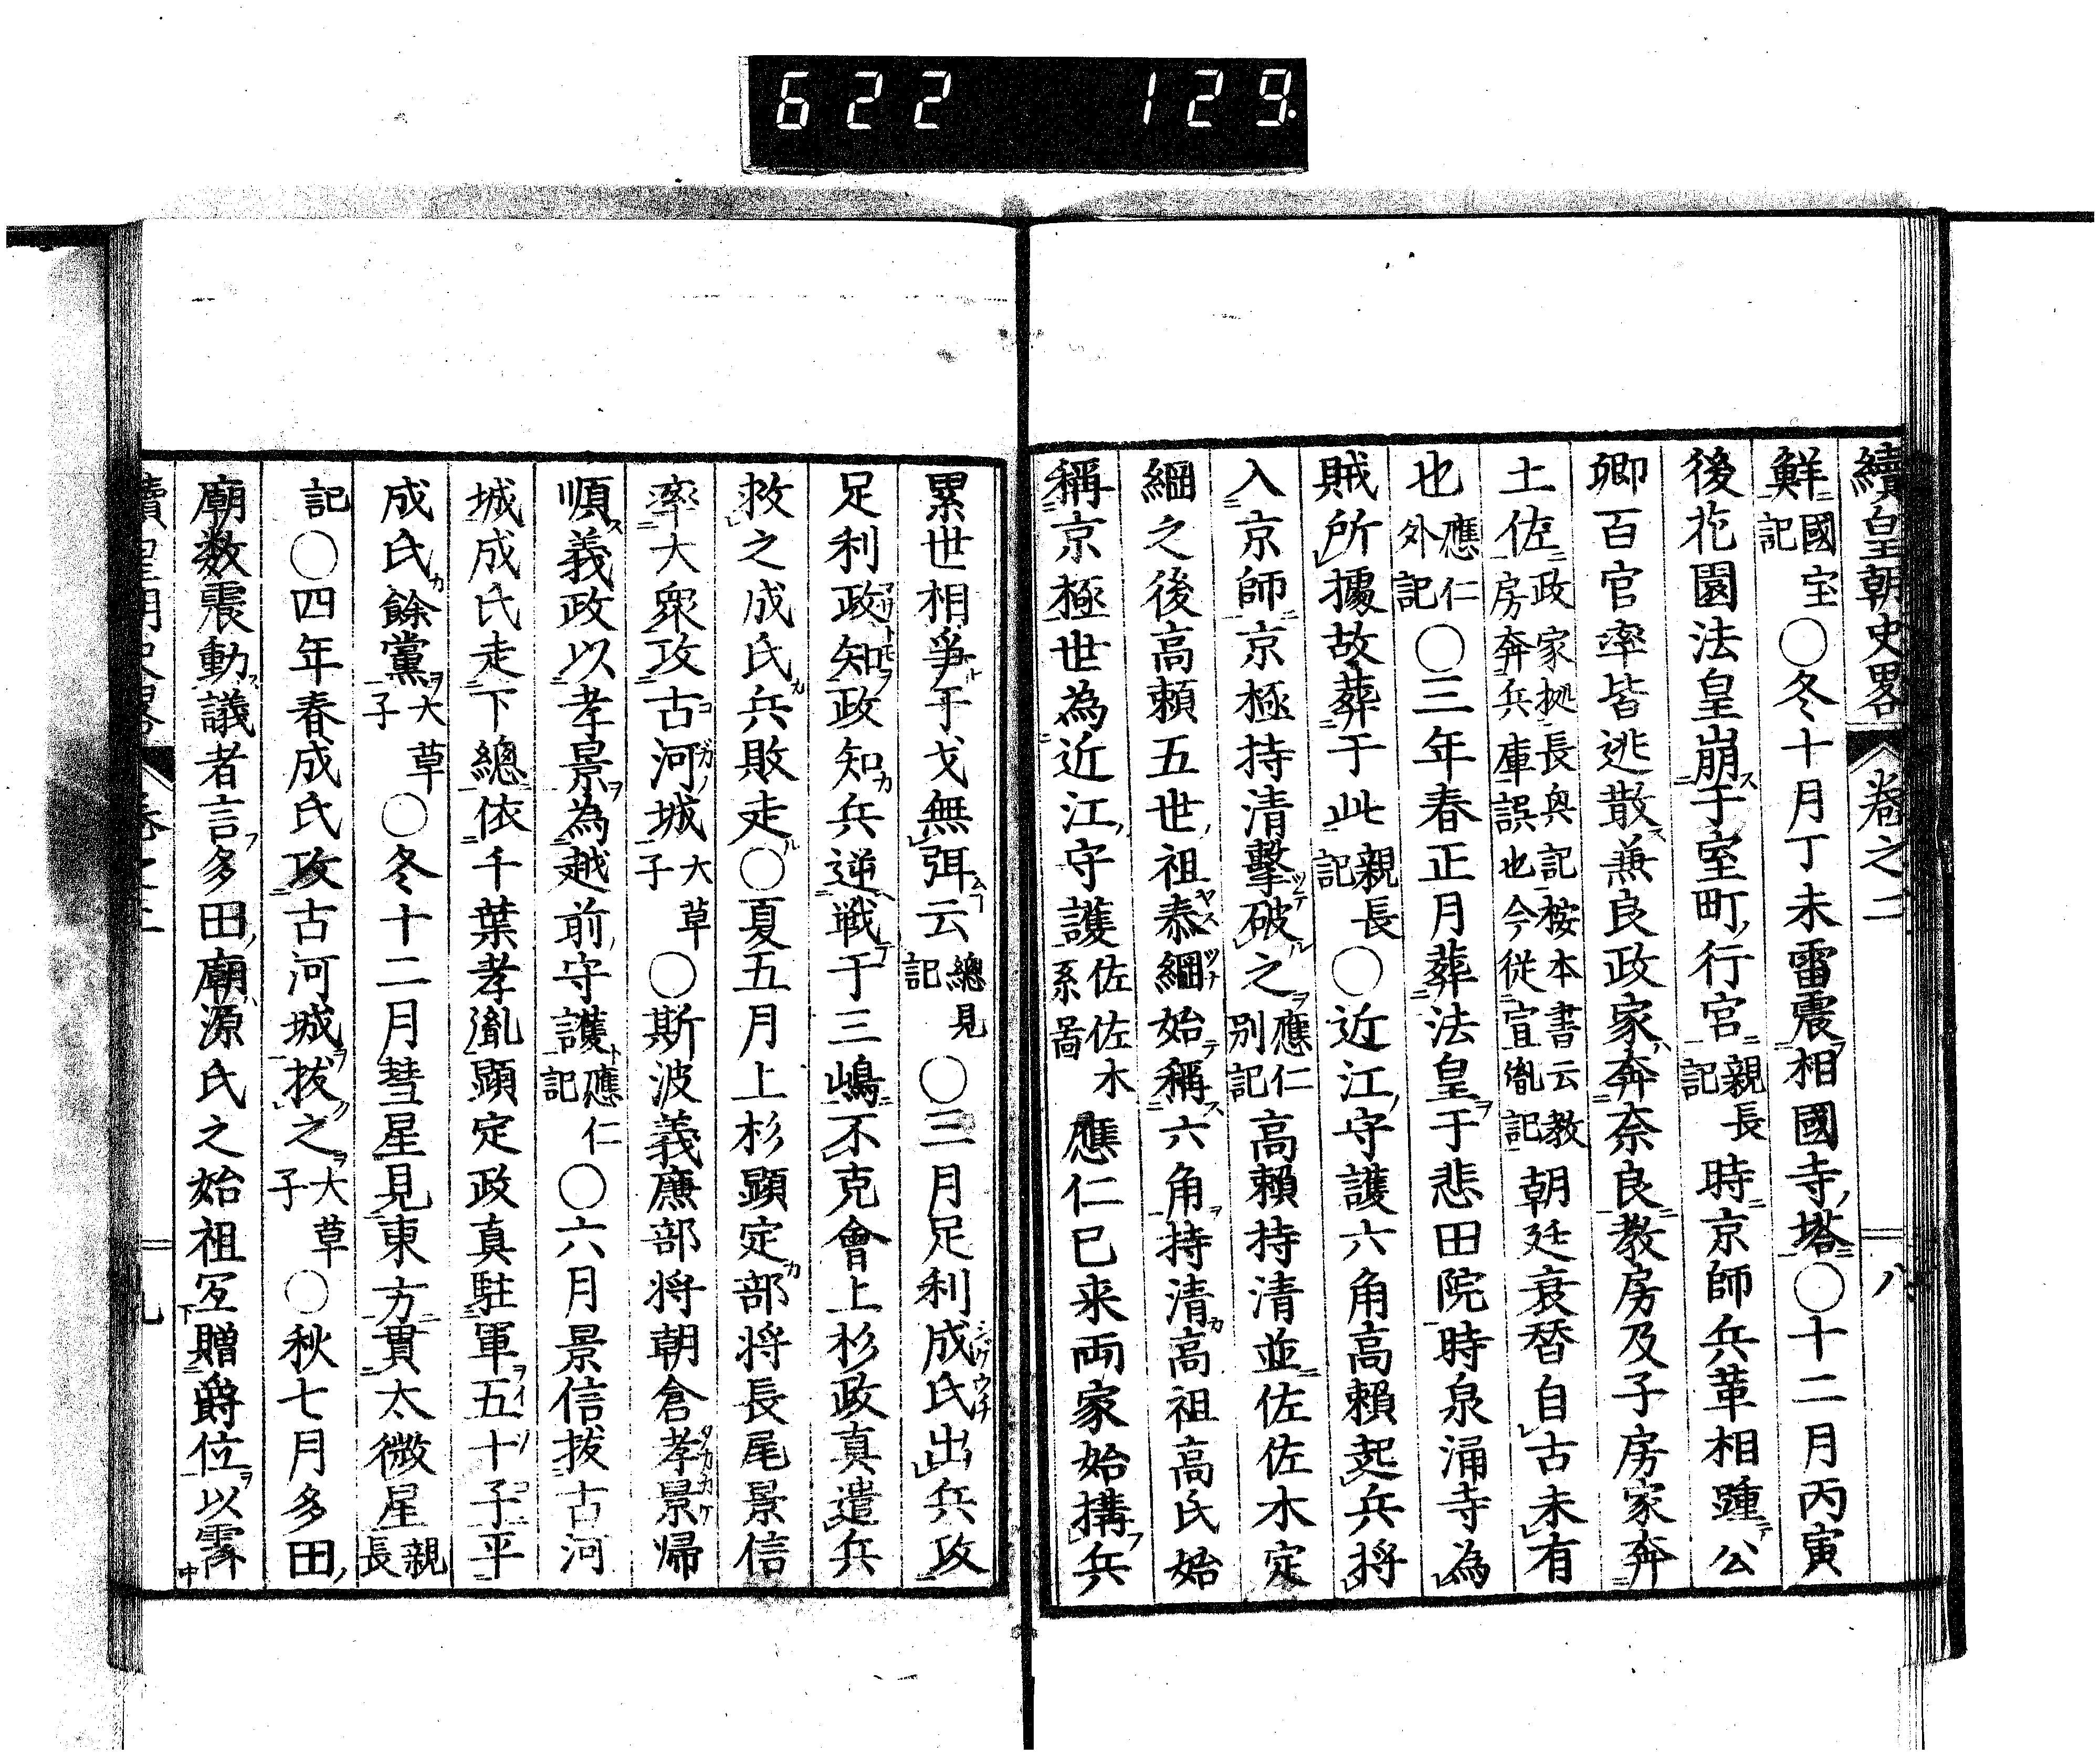 622 129.
續皇朝史畧 卷之二 八
鮮國宝記〇冬十月丁未雷震相國寺塔〇十二月丙寅
後花園法皇崩于室町行宮親長記時京師兵革相踵公
卿百官率皆逃散兼良政家奔奈良教房及子房家奔
土佐政家拠長興記桉本書云教房奔兵庫誤也今従宣胤記朝廷衰替自古未有
也應仁外記〇三年春正月葬法皇于悲田院時泉涌寺為
賊所據故葬于此親長記〇近江守護六角高賴起兵将
入京師京極持清擊破之應仁別記高賴持清並佐佐木定
綱之後高賴五世祖泰綱始稱六角持清高祖高氏始
稱京極世為近江守護佐佐木系啚應仁已来両家始搆兵
累世相爭干戈無弭云總見記〇三月足利成氏出兵攻
足利政知政知兵逆戦于三嶋不克會上杉政真遣兵
救之成氏兵敗走〇夏五月上杉顕定部将長尾景信
率大衆攻古河城大草子〇斯波義廉部将朝倉孝景帰
順義政以孝景為越前守護應仁記〇六月景信抜古河
城成氏走下總依千葉孝胤顕定政真駐軍五十子平
成氏餘黨大草子〇冬十二月彗星見東方貫太微星親長
記〇四年春成氏攻古河城抜之大草子〇秋七月多田
廟数震動議者言多田廟源氏之始祖宜贈爵位以霽